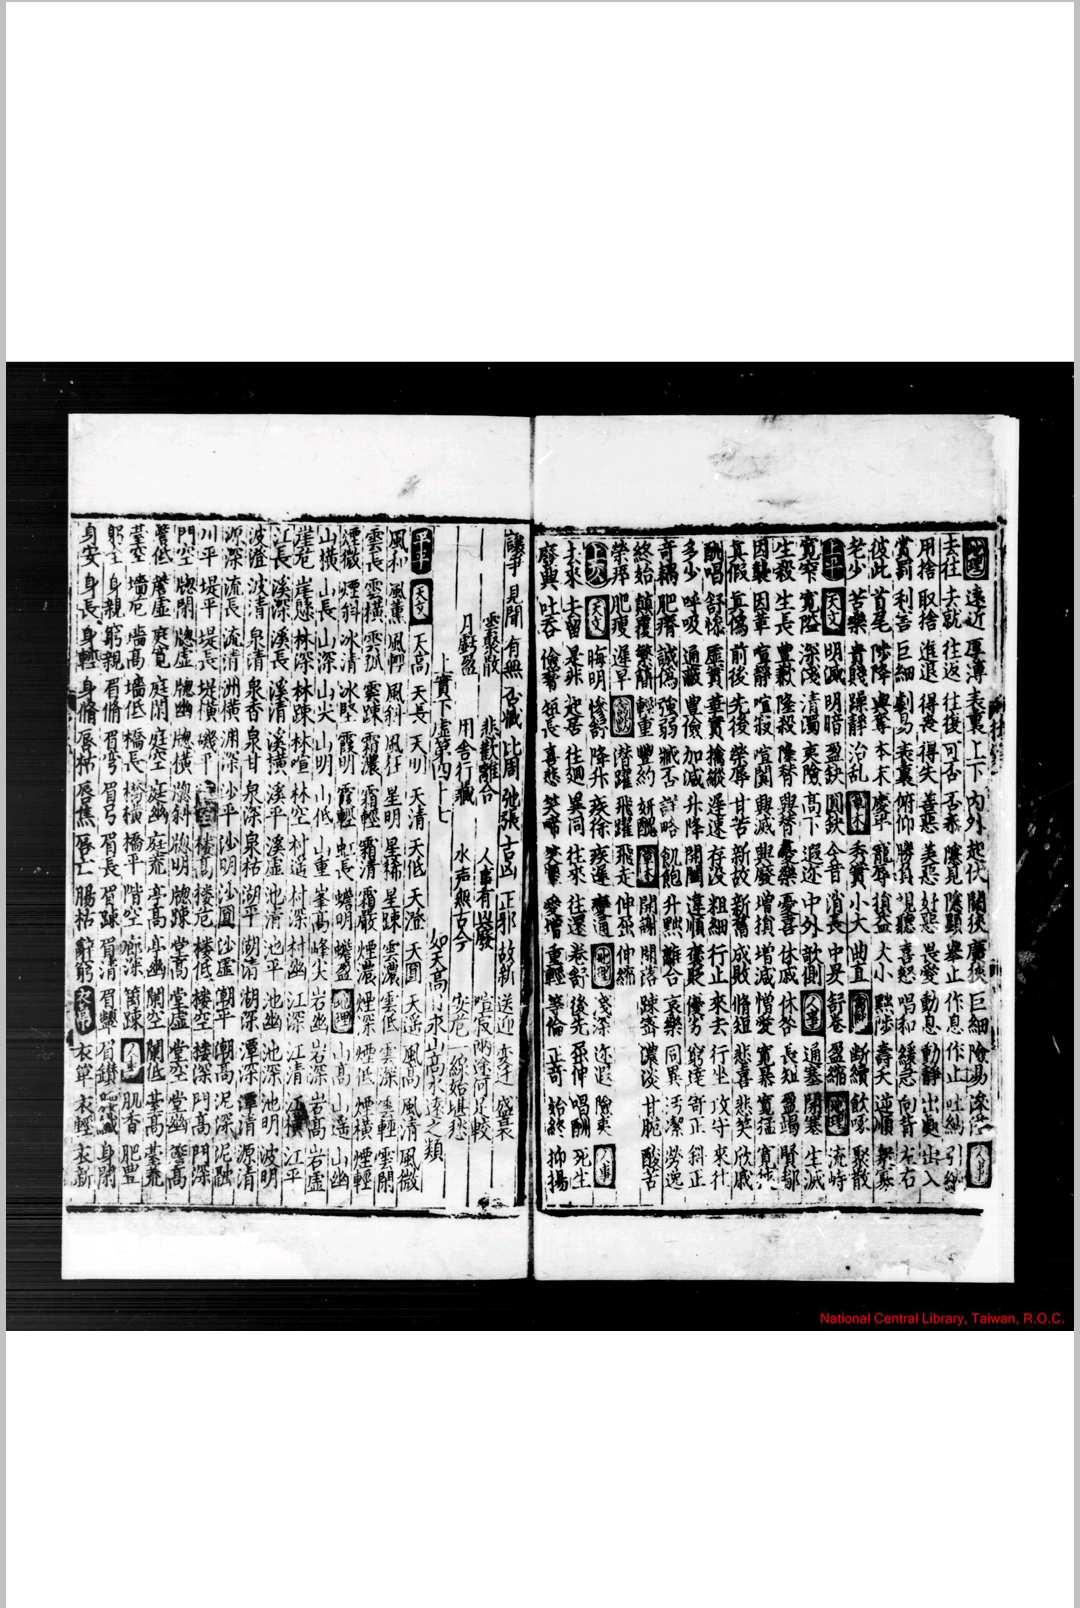 地理 遠近 厚薄 表裏 上下 內外 起伏 闔 巨細 險易 人事
去住 去就 往返 往復 可否 否泰 隱見 隱顯 舉止 作息 作止 吐納 引
用捨 取捨 進退 得喪 得失 善惡 美惡 好惡 畏愛 動息 動靜 出處 出入
賞罰 利害 巨細 劇易 表裏 俯仰 勝負 視聽 喜怒 唱和 緩急 向背 左右
彼此 首尾 陟降 與奪 本末 慶弔 寵辱 損益 大小 黜陟 壽夭 逆順 衆寡
老少 苦樂 貴賤 躁靜 治亂 草木 秀實 小大 曲直 斷續 飲啄 聚散
上平 天文 明滅 明暗 盈缺 圓缺 今昔 消長 中 舒卷 盈縮 地理 流峙
寬窄 寬隘 深淺 清濁 夷險 高下 遐邇 中外 歌側 人事 通塞 閉塞 生滅
生殺 生長 豐歉 隆殺 隆替 興替 憂樂 憂喜 休戚 休咎 長短 盈竭 賢鄙
因襲 因革 喧靜 喧寂 喧闐 興滅 興廢 增損 增減 憎愛 寬暴 寬猛
真假 真偽 前後 先後 榮辱 甘苦 新故 新舊 成敗 脩短 悲喜 悲笑 欣戚
酬唱 舒慘 虛實 華實 擒縱 遲速 存沒 粗細 行止 來去 行坐 攻守 來往
多少 呼吸 通蔽 豐儉 加減 升降 開闔 違順 褒貶 優劣 窮達 奇正 斜正
奇耦 肥瘠 誠偽 強弱 臧否 詳略 飢飽 升黜 離合 哀樂 同異 汚潔 勞逸
終始 顛覆 繁簡 輕重 豐約 妍醜 草木 開謝 開落 踈密 濃淡 甘脆 酸苦
榮瘁 肥瘦 遲早 潛躍 飛躍 飛走 伸屈 伸縮
上入 天文 晦明 慘舒 降升 疾徐 疾遲 通 地理 淺深 邇遐 險夷 人事
去來 去留 是非 起居 往廻 異同 往來 往還 卷舒 後先 屈伸 唱酬 死生
廢興 吐吞 儉奢 短長 喜悲 笑啼 愛憎 重輕 等倫 正奇 始終 抑揚
見聞 有無 否臧 比周 弛張 吉凶 正邪 故新 送迎 盛衰
雲聚散 悲歡離合 人事有興廢
月虧盈 用舍行藏 水声無古今 安危
上實下虛第四十七 如天高月永山高水遠之類
平平 天文 天高 天長 天明 天清 天低 天澄 天圓 天遙 風高 風清 風微
風和 風薰 風輕 風斜 風狂 星明 星稀 星踈 雲濃 雲低 雲深 雲輕 雲閑
雲長 雲橫 雲孤 雲踈 霜濃 霜輕 霜清 霜嚴 煙濃 煙深 煙低 煙橫 煙輕
煙微 煙斜 冰清 冰堅 霞明 霞輕 虹長 蟾明 蟾盈 地理 山高 山遙 山幽
山橫 山長 山深 山尖 山明 山低 山重 峯高 峰尖 岩幽 岩深 岩高 岩虛
崖危 崖懸 林深 林踈 林喧 林空 村遥 村深 村幽 江深 江清 江橫 江平
江長 溪深 溪長 溪清 溪橫 溪平 溪虛 池清 池平 池幽 池深 池明 波明
波澄 波清 泉清 泉香 泉甘 泉深 泉枯 湖平 湖清 湖深 潭深 潭清 源清
源深 流長 流清 洲橫 淵深 沙平 沙明 沙圓 沙虛 潮平 潮高 泥深 泥融
川平 堤平 堤長 堤橫 磯平 樓高 樓危 樓低 樓空 樓深 門高 門深
門空 牎閑 牎虛 牎幽 牎橫 牎斜 牎明 牎踈 堂高 堂虛 堂空 堂幽
簷低 簷虛 庭寬 庭閑 庭空 庭幽 庭荒 亭高 亭幽 闌空 闌低 臺高 臺荒
臺空 墻危 墻高 墻低 橋長 橋橫 橋平 階空 廊深 人事 肌香 肥豊
躬全 身親 窮親 眉脩 眉長 眉彎 眉弓 眉長 眉踈 眉清 眉顰 身閑
身安 身長 身輕 身脩 唇枯 唇焦 唇亡 腸枯 辭窮 衣帛 衣單 衣輕 衣新
National Central Library, Taiwan, R.O.C.